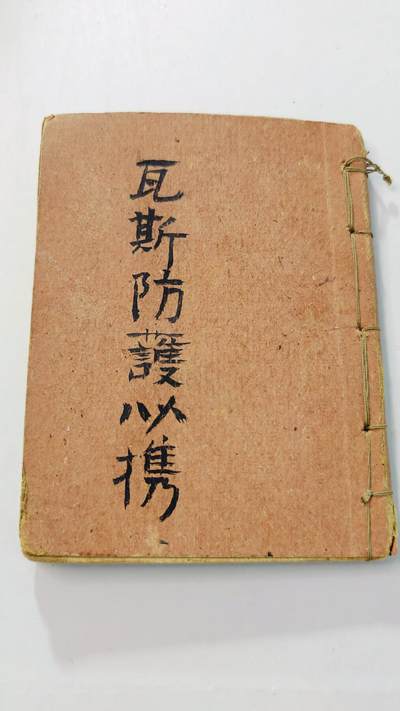 瓦斯防護必携